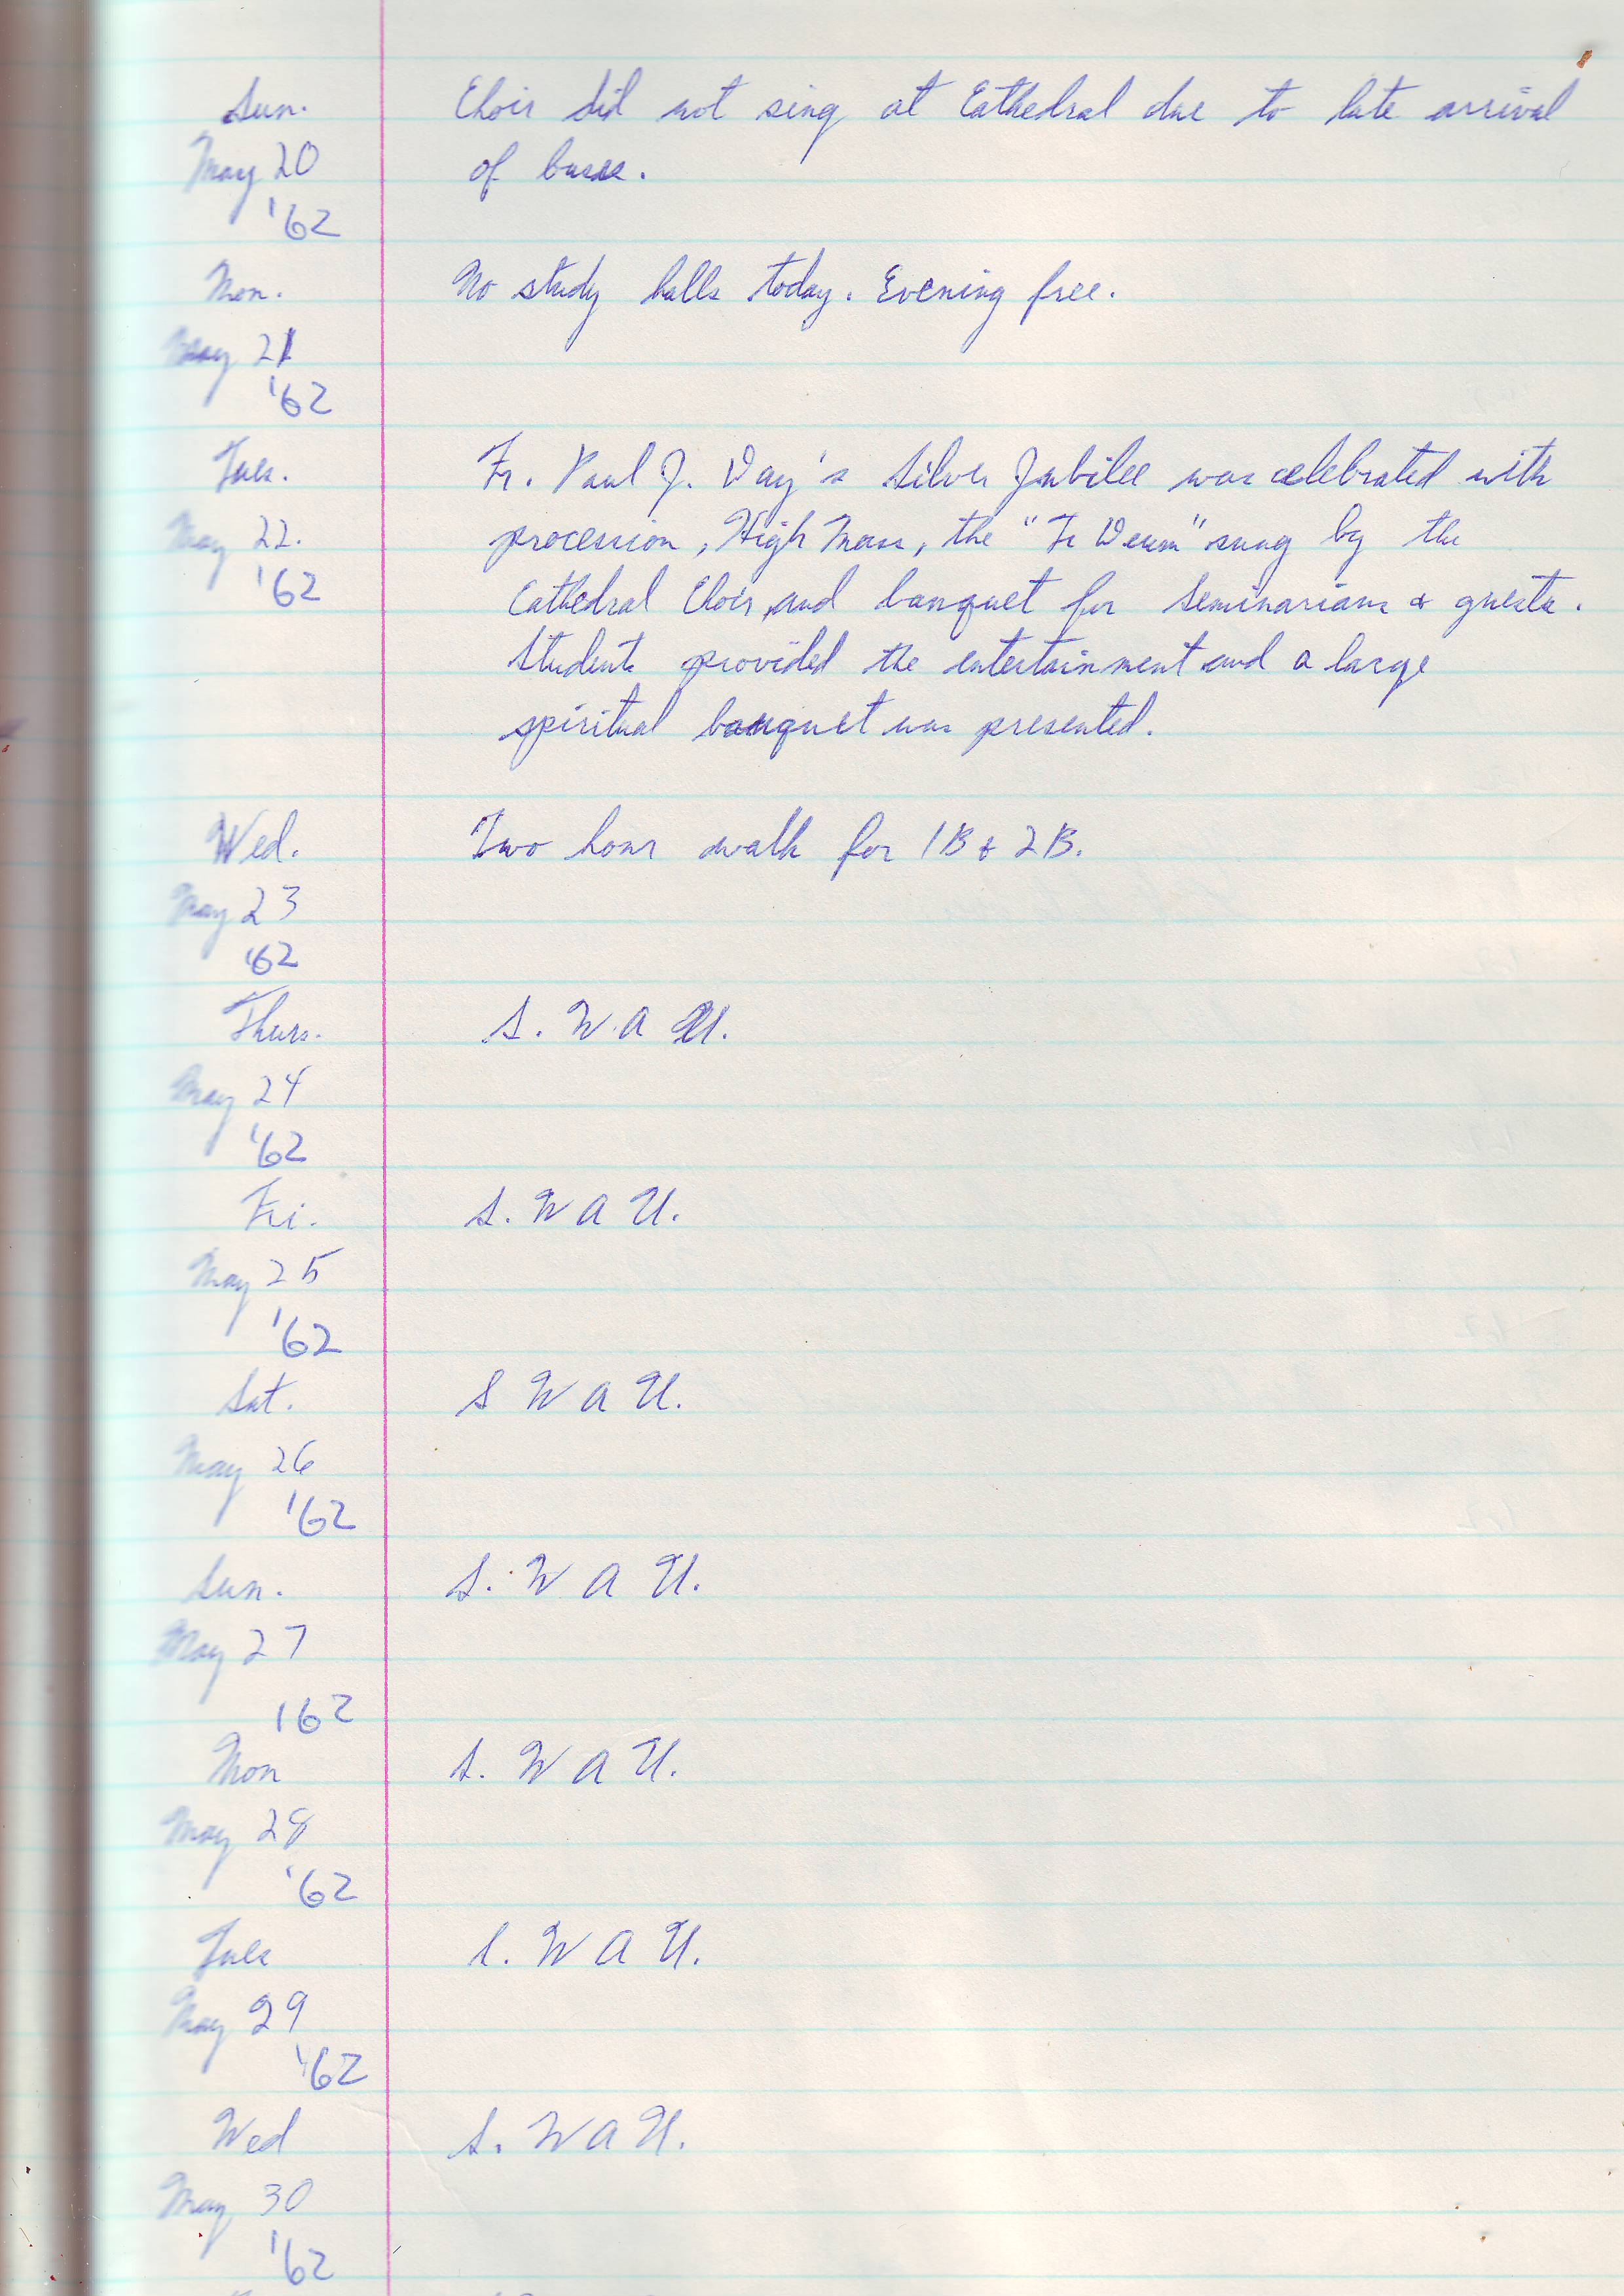 Sun. Choir did not sing at Cathedral due to late arrival
May 20 of buses.
'62
Mon. No study halls today. Evening free.
May 21
'62
Tues. Fr. Paul J. Day's Silver Jubilee was celebrated with
May 22. procession, High Mass, the "Te Deum" sung by the
'62 Cathedral Choir, and banquet for Seminarians & guests.
Students provided the entertainment and a large
spiritual banquet was presented.
Wed. Two hour walk for 1B & 2B.
May 23
'62
Thurs. S. W. A U.
May 24
'62
Fri. S. W A U.
May 25
'62
Sat. S W A U.
May 26
'62
Sun. S. W A U.
May 27
'62
Mon S. W A U.
May 28
'62
Tues S. W A U.
May 29
'62
Wed S. W A U.
May 30
'62